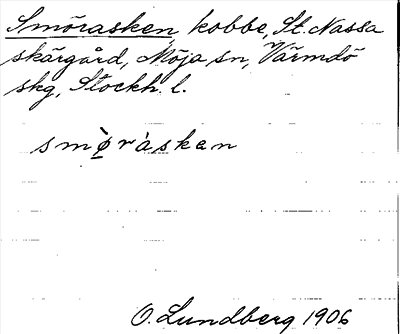 Smörasken, kobbe, St. Nassa
skärgård, Möja sn, Värmdö
skg, Stockh. l.
smø̀ràsken
O. Lundberg 1906